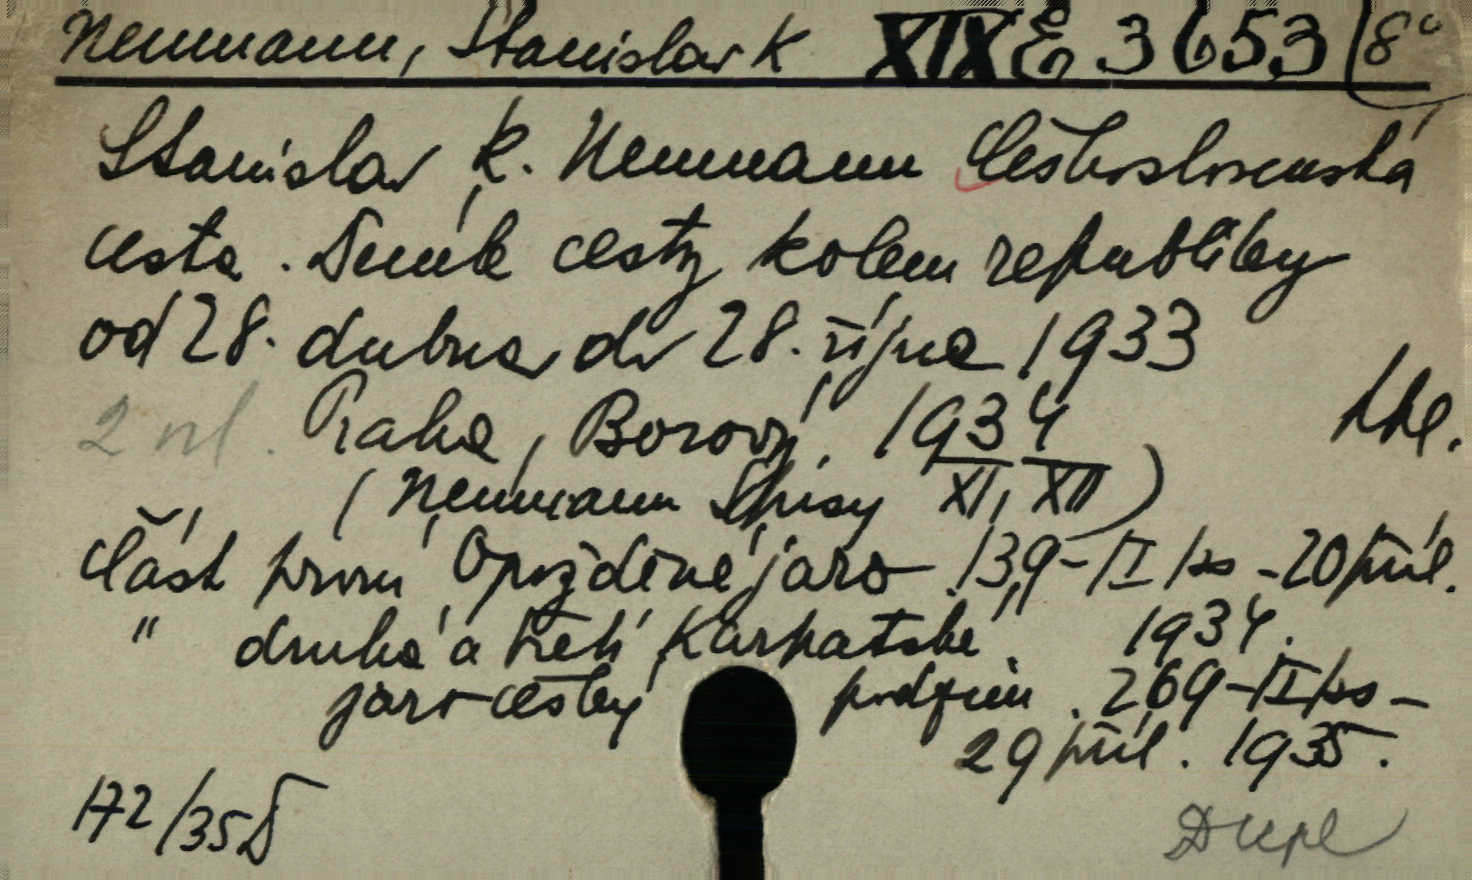 Neumann, Stanislav K XIX E 3653 8°
Stanislav K. Neumann Československá
cesta. Deník cesty kolem republiky
od 28. dubna do 28. října 1933
2 vl. Praha, Borový. 1934
(Neumann Spisy XI, XII)
Část první Opožděné jaro. 139-II 1 s - 20 příl.
" druhá a třetí Karpatské 1934.
jaro-český podzim. 269-II 1 s -
29 příl. 1935.
172/35 D
Dupl